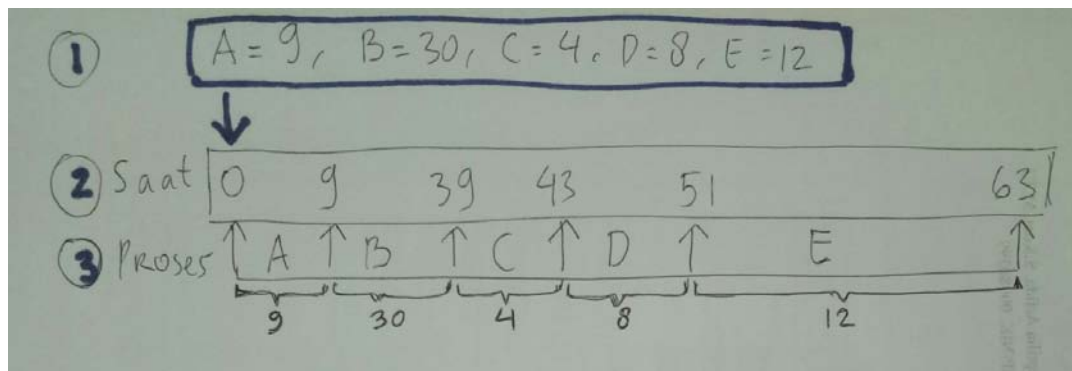 1 A = 9, B = 30, C = 4, D = 8, E = 12
2 Saat 0 9 39 43 51 63
3 Proses A B C D E
9 30 4 8 12